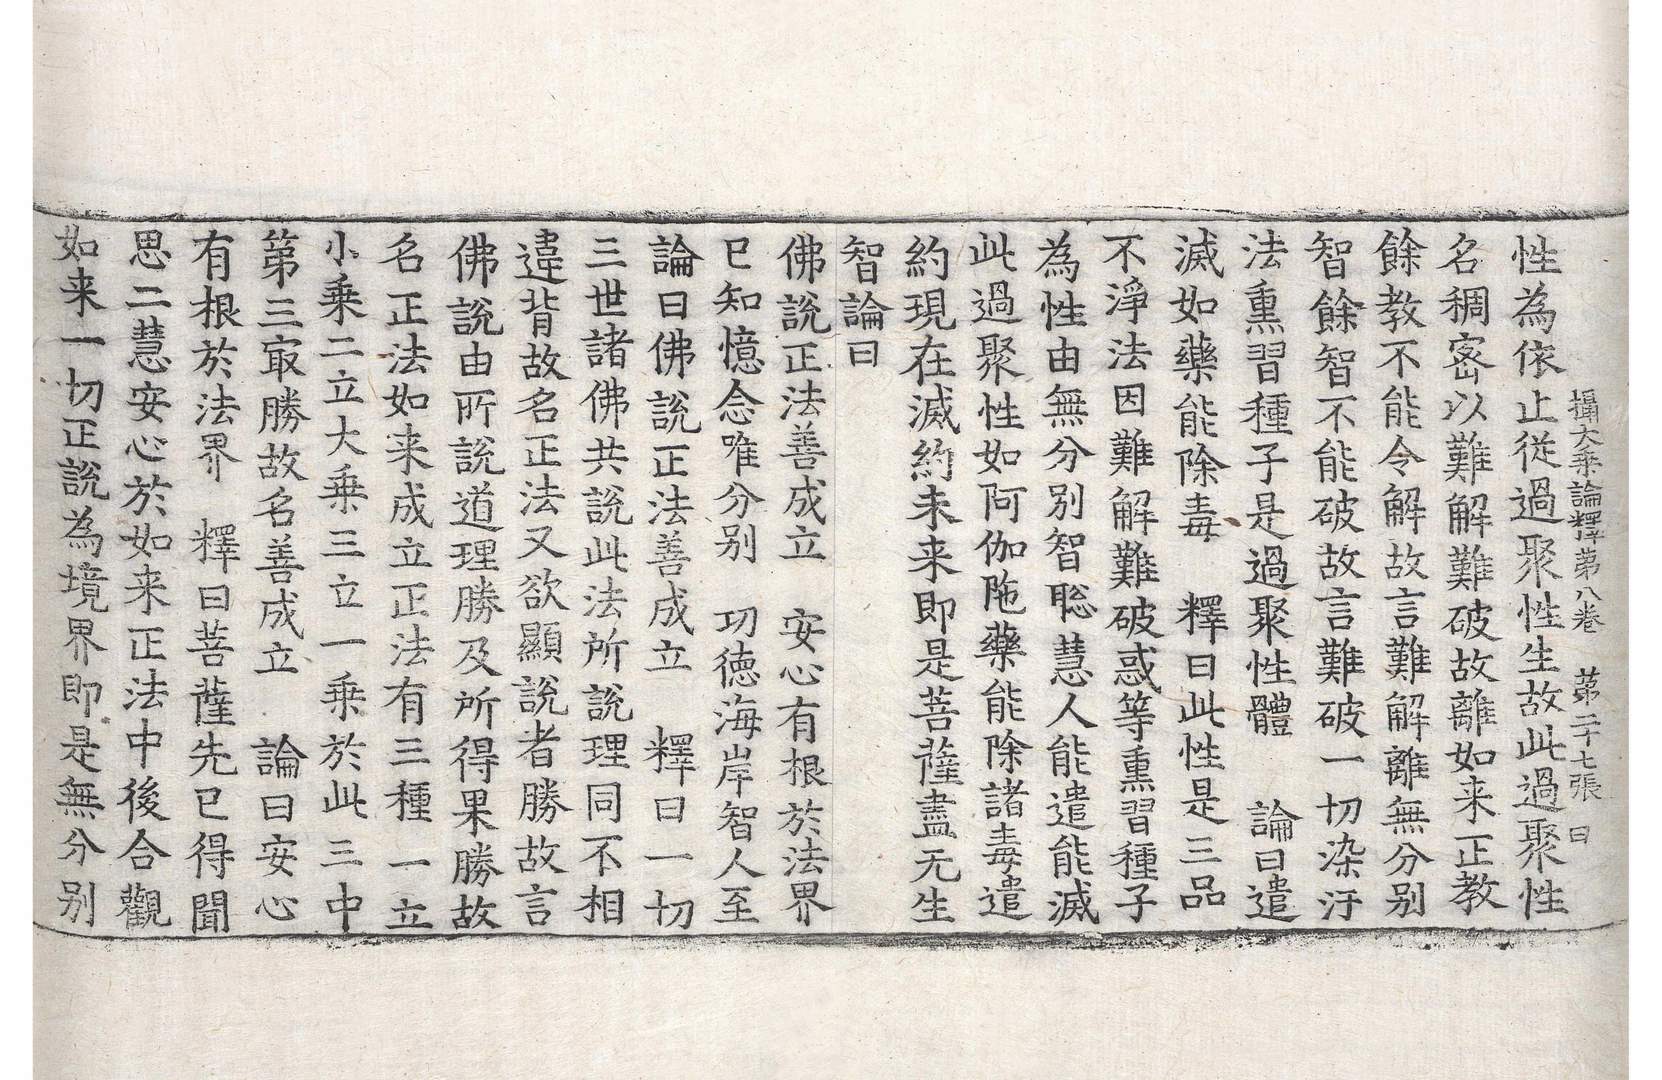 攝大乘論釋第八卷 第二十七張 曰
性為依止從過聚性生故此過聚性
名稠密以難解難破故離如来正教
餘教不能令解故言難解離無分别
智餘智不能破故言難破一切染汙
法熏習種子是過聚性體 論曰遣
滅如藥能除毒 釋曰此性是三品
不淨法因難解難破惑等熏習種子
為性由無分别智聡慧人能遣能滅
此過聚性如阿伽陁藥能除諸毒遣
約現在滅約未来即是菩薩盡无生
智論曰
佛說正法善成立 安心有根於法界
已知憶念唯分别 功德海岸智人至
論曰佛說正法善成立 釋曰一切
三世諸佛共說此法所說理同不相
違背故名正法又欲顯說者勝故言
佛說由所說道理勝及所得果勝故
名正法如来成立正法有三種一立
小乗二立大乗三立一乗於此三中
第三㝡勝故名善成立 論曰安心
有根於法界 釋曰菩薩先已得聞
思二慧安心於如来正法中後合觀
如来一切正說為境界即是無分别